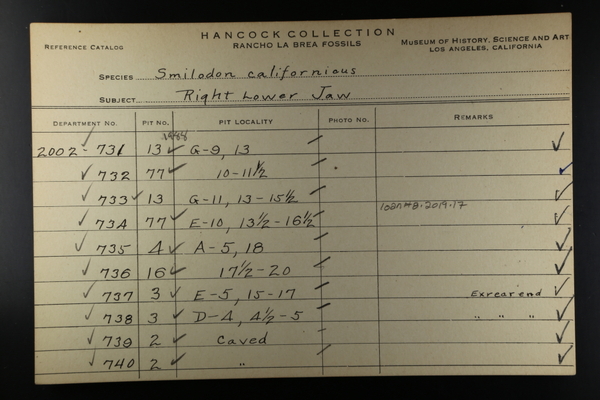 HANCOCK COLLECTION
REFERENCE CATALOG RANCHO LA BREA FOSSILS MUSEUM OF HISTORY, SCIENCE AND ART
LOS ANGELES, CALIFORNIA
SPECIES Smilodon californicus
SUBJECT Right Lower Jaw
DEPARTMENT NO. PIT NO. PIT LOCALITY PHOTO NO. REMARKS
2002 - 731 13 ✓ G-9, 13 ✓
✓ 732 77 ✓ 10-11½ ✓
✓ 733 ✓ 13 G-11, 13-15½ ✓
✓ 734 77 ✓ E-10, 13½-16½ loan#8-2019-17 ✓
✓ 735 4 ✓ A-5, 18 ✓
✓ 736 16 ✓ 17½-20 ✓
✓ 737 3 ✓ E-5, 15-17 Ex rear end ✓
✓ 738 3 ✓ D-4, 4½-5 " " " ✓
✓ 739 2 ✓ Caved ✓
✓ 740 2 ✓ " ✓